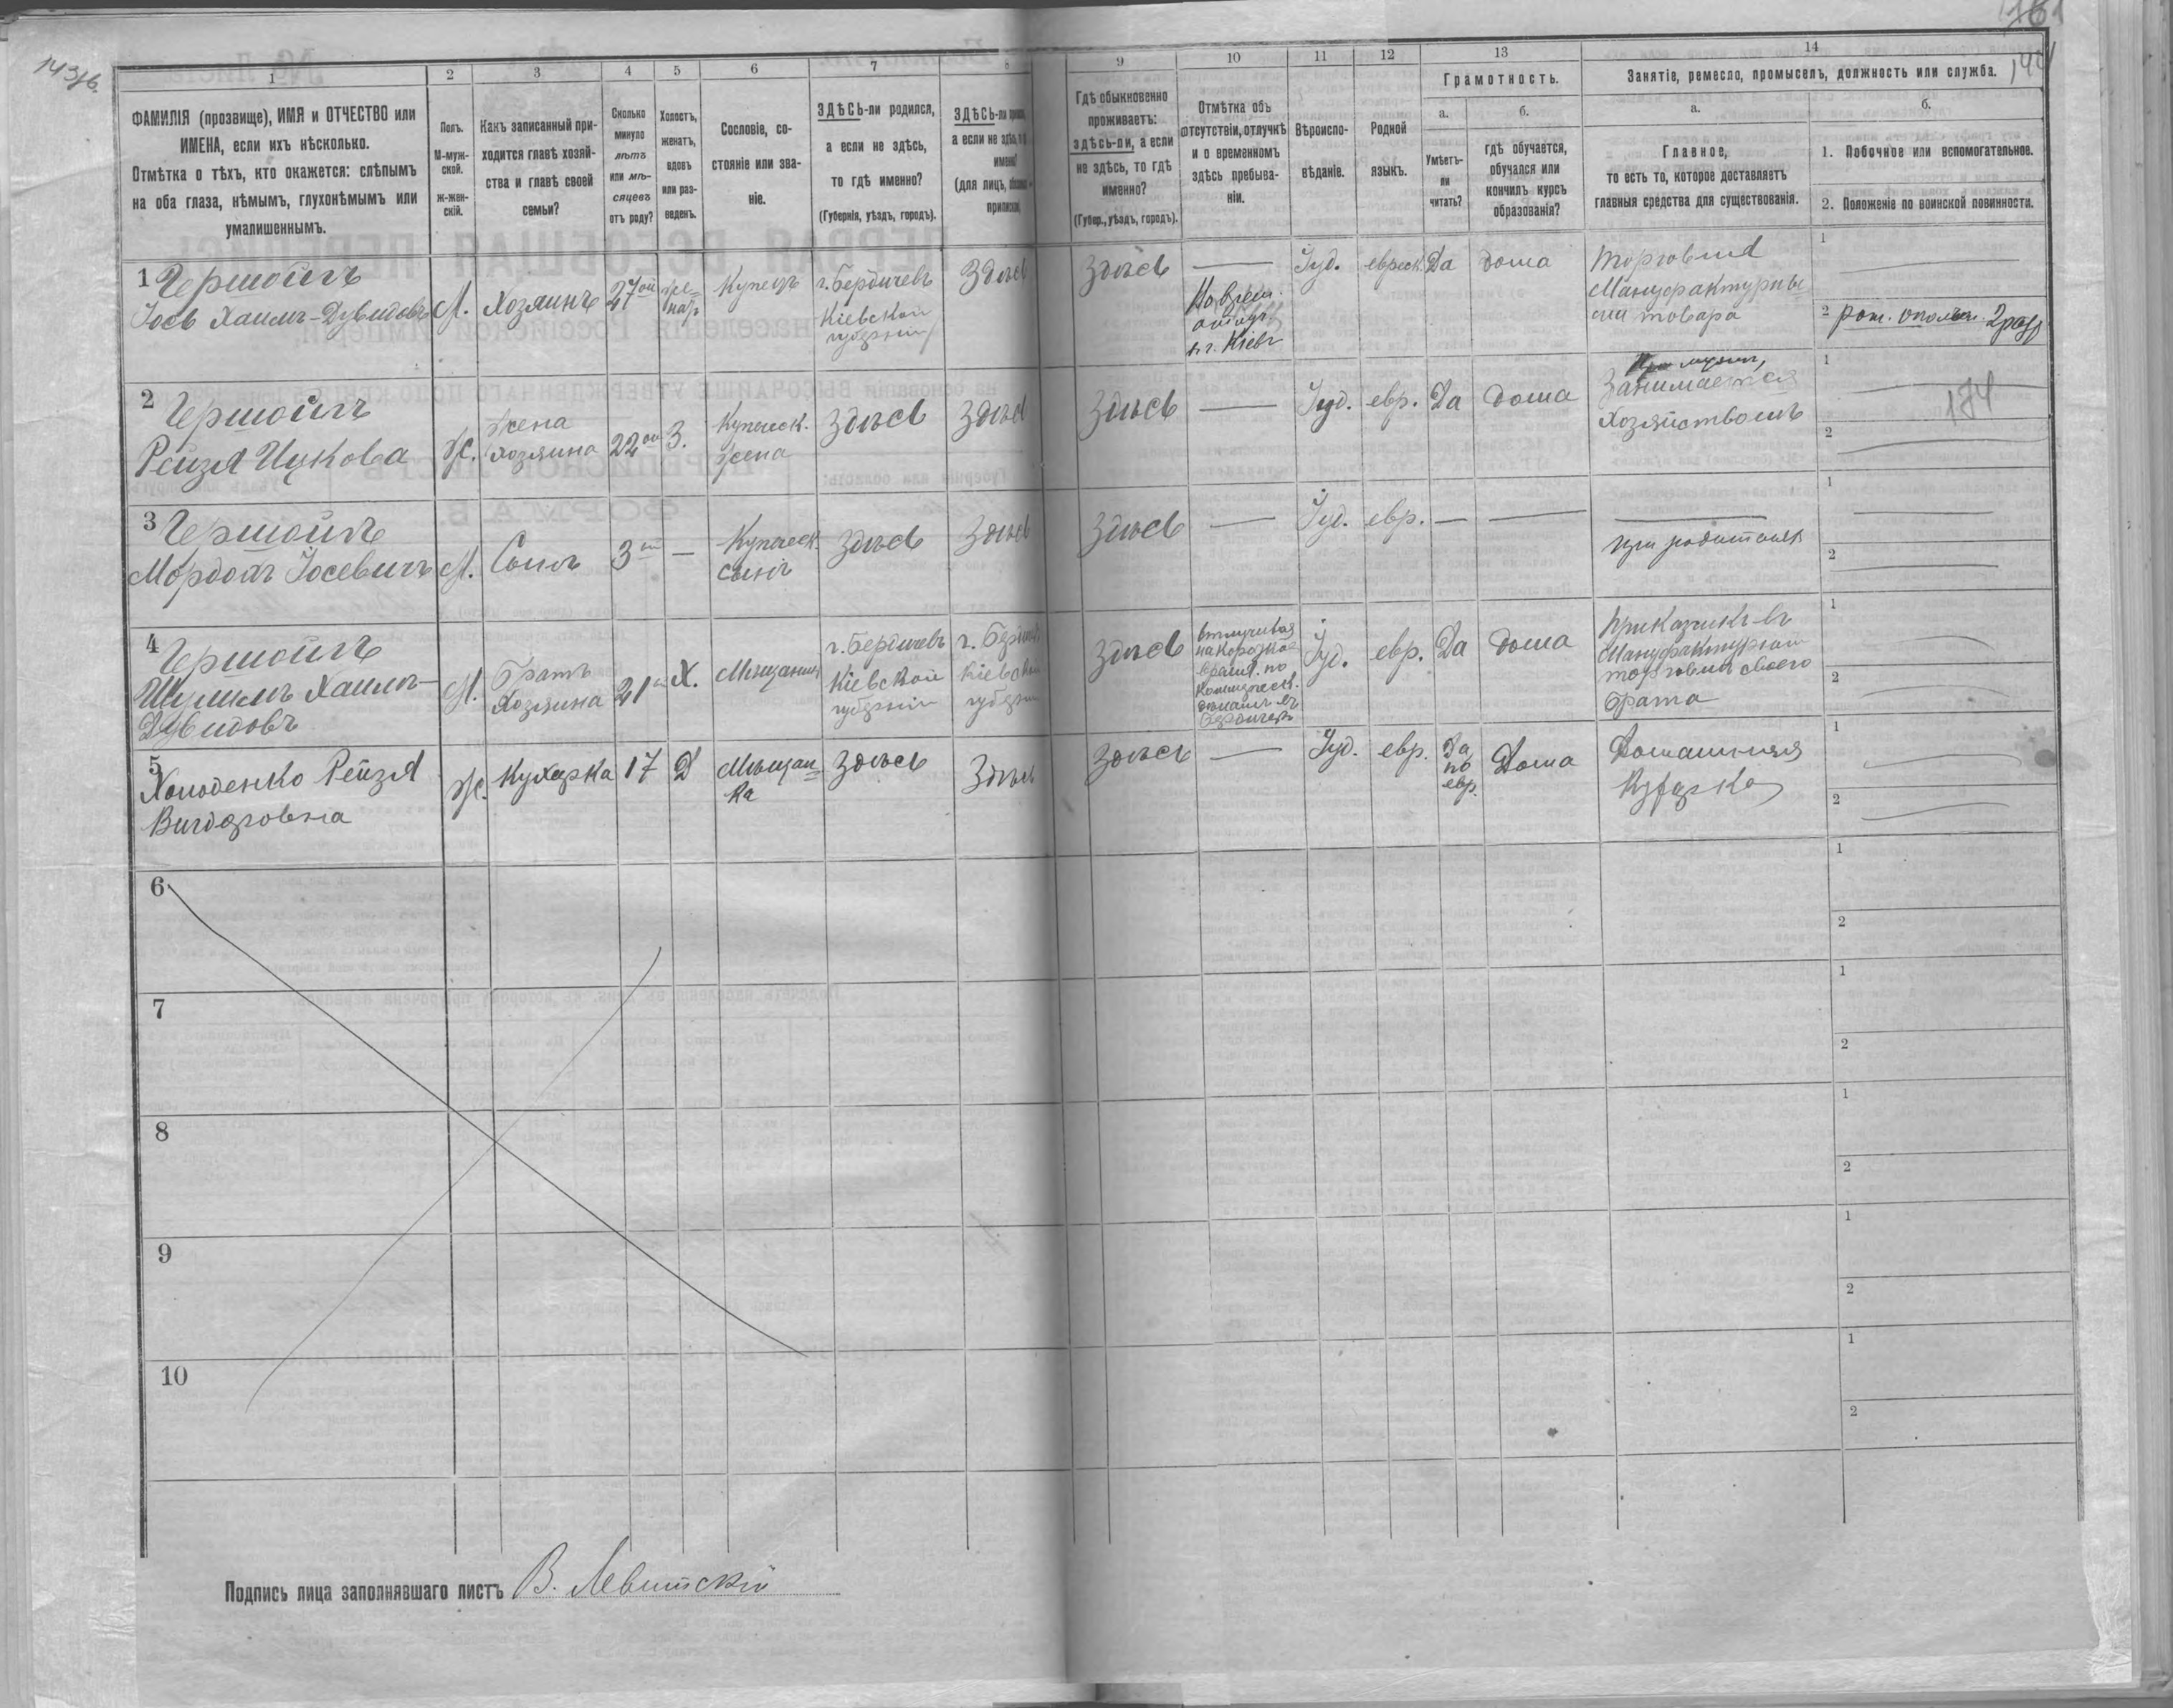 143/б.
161
144
1
2
3
4
5
6
7
8
9
10
11
12
13
14
ФАМИЛІЯ (прозвище), ИМЯ и ОТЧЕСТВО или
ИМЕНА, если ихъ нѣсколько.
Отмѣтка о тѣхъ, кто окажется: слѣпымъ
на оба глаза, нѣмымъ, глухонѣмымъ или
умалишеннымъ.
Полъ.
М-муж-
ской.
ж-жен-
скій.
Какъ записанный при-
ходится главѣ хозяй-
ства и главѣ своей
семьи?
Сколько
минуло
лѣтъ
или мѣ-
сяцевъ
отъ роду?
Холостъ,
женатъ,
вдовъ
или раз-
веденъ.
Сословіе, со-
стояніе или зва-
ніе.
ЗДѢСЬ-ли родился,
а если не здѣсь,
то гдѣ именно?
(Губернія, уѣздъ, городъ).
ЗДѢСЬ-ли
а если не здѣсь,
(для лицъ,
Гдѣ обыкновенно
проживаетъ:
здѣсь-ли, а если
не здѣсь, то гдѣ
именно?
(Губер., уѣздъ, городъ).
Отмѣтка объ
отсутствіи, отлучкѣ
и о временномъ
здѣсь пребыва-
ніи.
Вѣроиспо-
вѣданіе.
Родной
языкъ.
Грамотность.
а.
Умѣетъ-
ли
читать?
б.
гдѣ обучается,
обучался или
кончилъ курсъ
образованія?
Занятіе, ремесло, промыселъ, должность или служба.
а.
Главное,
то есть то, которое доставляетъ
главныя средства для существованія.
б.
1. Побочное или вспомогательное.
2. Положеніе по воинской повинности.
1 Гершойгъ
Іосъ Хаимъ-Дувидовъ
М.
Хозяинъ
27
Купецъ
г. Бердичевъ
Кіевской
губерніи
Здѣсь
Здѣсь
—
На врем.
в г. Кіевъ
Іуд.
еврейск.
Да
дома
Торговля
Мануфактурны
ми товара
1
2 рат. ополч. 2 разр
2 Гершойгъ
Рейзя Ицкова
Ж.
жена
хозяина
22
З.
Купеческ.
жена
Здѣсь
Здѣсь
Здѣсь
—
Іуд.
евр.
Да
дома
При мужѣ,
Занимается
Хозяйствомъ
1
2
174
3 Гершойгъ
Мордохъ Іосевичъ
М.
Сынъ
3
—
Купеческ.
сынъ
Здѣсь
Здѣсь
Здѣсь
—
Іуд.
евр.
—
—
при родителяхъ
1
2
4 Гершойгъ
Шулимъ Хаимъ-
Дувидовъ
М.
Братъ
Хозяина
21
Х.
Мѣщанинъ
г. Бердичевъ
Кіевской
губерніи
г. Бердич
Кіевской
губерніи
Здѣсь
на короткое
время по
коммерческ.
дѣламъ въ
Бердичевъ
Іуд.
евр.
Да
дома
Приказчикъ въ
Мануфактурной
торговли своего
брата
1
2
5 Холоденко Рейзя
Вигдоровна
Ж.
Кухарка
17
Д
Мѣщан-
ка
Здѣсь
Здѣсь
Здѣсь
—
Іуд.
евр.
Да
по
евр.
Дома
Домашняя
Кухарка
1
2
6
1
2
7
1
2
8
1
2
9
1
2
10
1
2
Подпись лица заполнявшаго листъ В. Левитскій